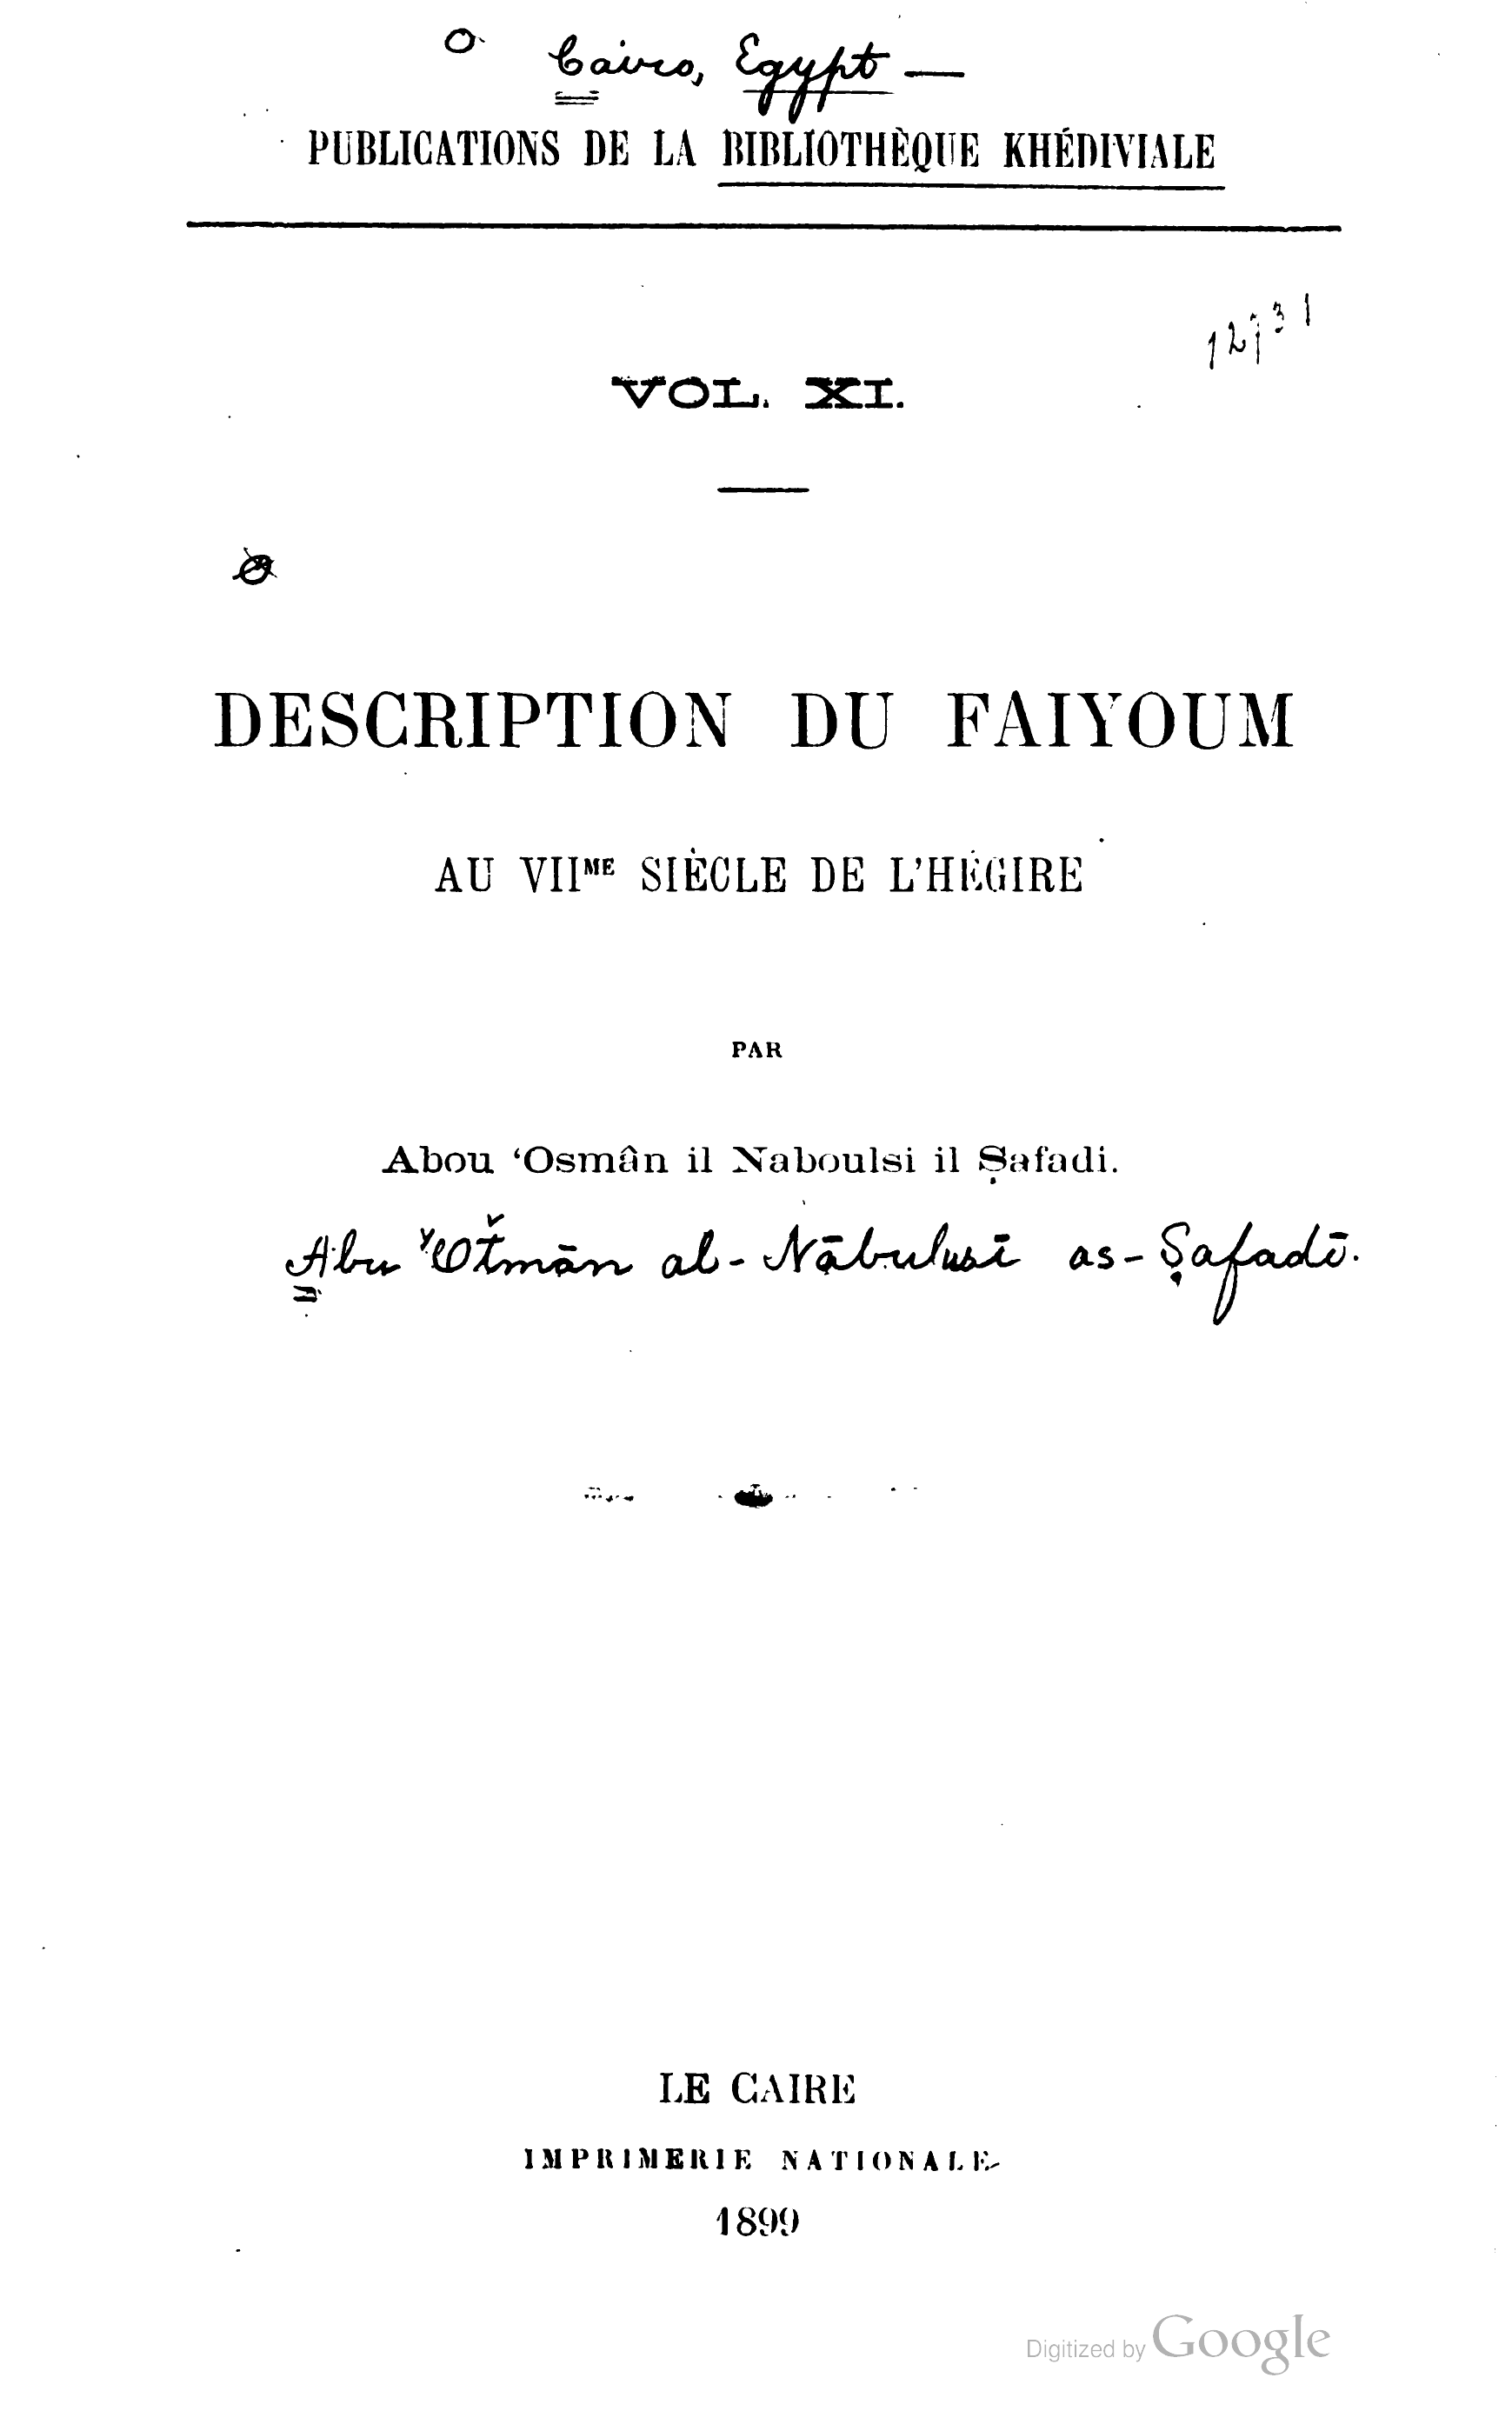 Cairo, Egypt —
PUBLICATIONS DE LA BIBLIOTHÈQUE KHÉDIVIALE
VOL. XI.
DESCRIPTION DU FAIYOUM
AU VIIME SIÈCLE DE L'HÉGIRE
PAR
Abou ‘Osmân il Naboulsi il Ṣafadi.
Abu ʿOṯmān al-Nābulusī as-Ṣafadī.
LE CAIRE
IMPRIMERIE NATIONALE
1899
Digitized by Google